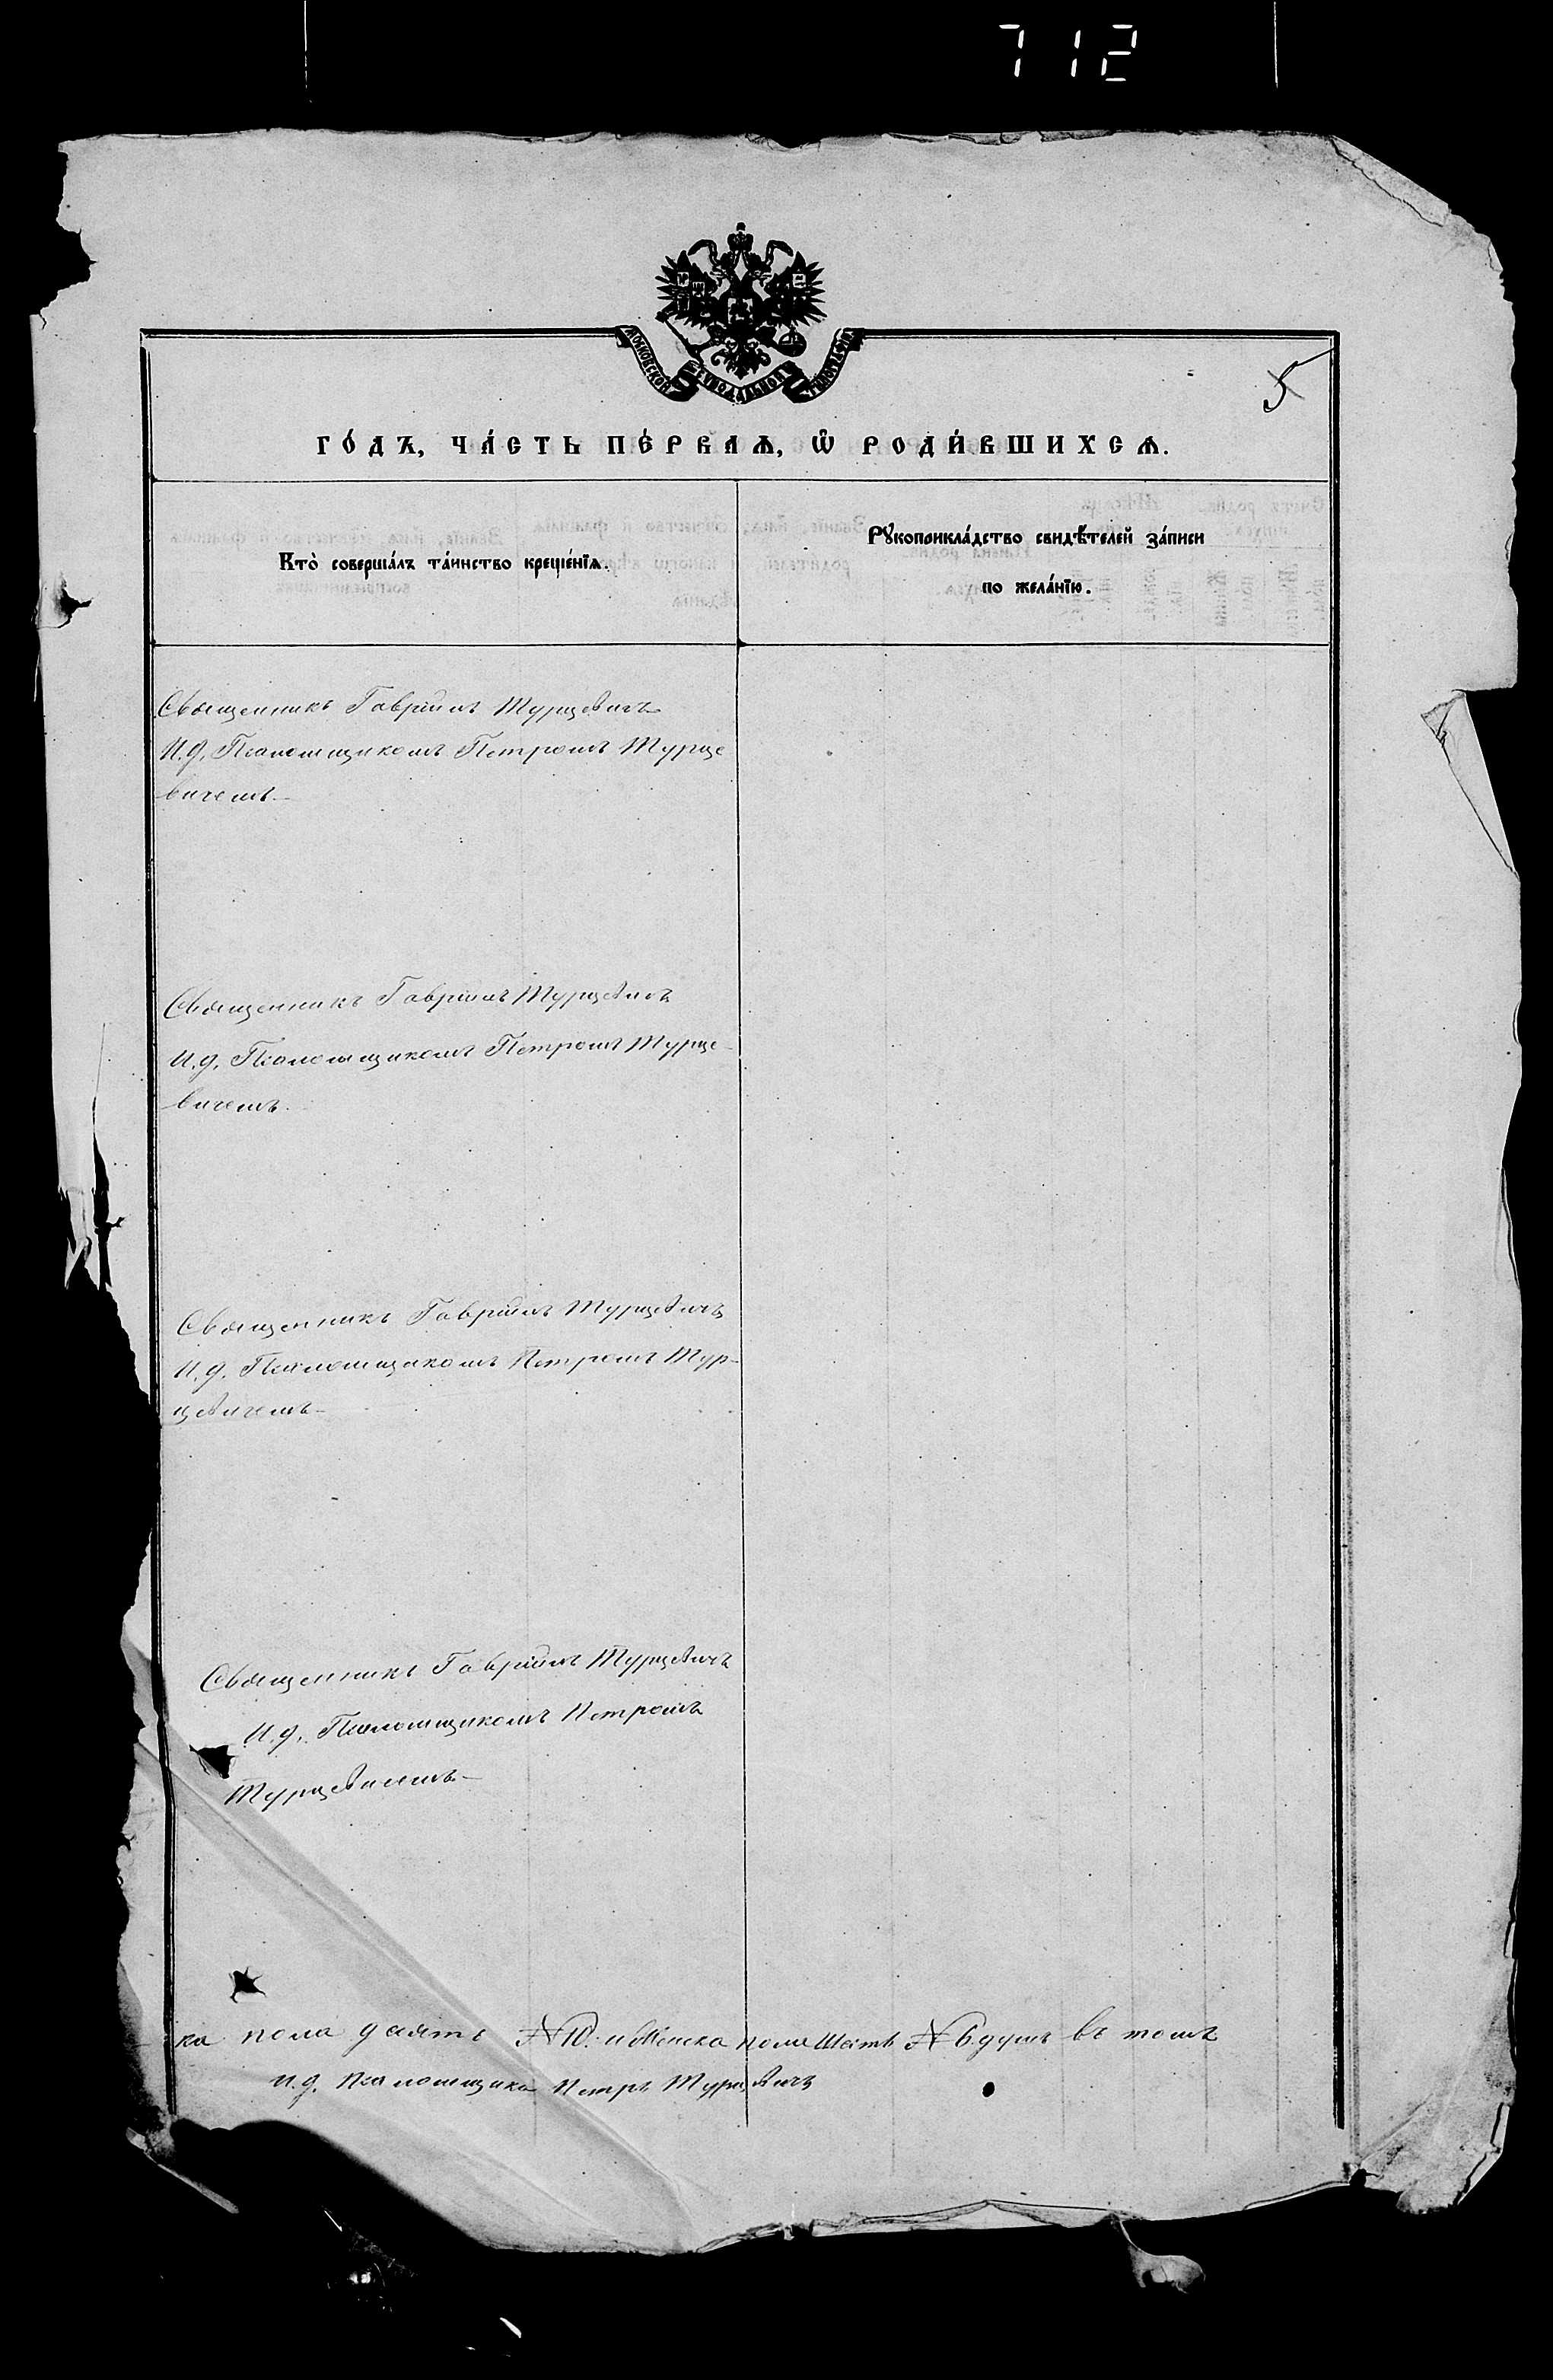 712
МОСКОВСКОЙ СѴНОДАЛЬНОЙ ТИПОГРАФІИ
5
го́дъ, ча́сть пе́рваѧ, ѡ҆ роди́вшихсѧ.
Кто̀ соверша́лъ та́инство креще́нїѧ.
Рꙋкоприкла́дство свидѣ́телей за́писи
по жела́нїю.
Священникъ Гавріилъ Турцевичъ
И.д. Псаломщикомъ Петромъ Турце
вичемъ
Священникъ Гавріилъ Турцевичъ
И.д. Псаломщикомъ Петромъ Турце-
вичемъ.
Священникъ Гавріилъ Турцевичъ
И.д. Псаломщикомъ Петромъ Тур-
цевичемъ
Священникъ Гавріилъ Турцевичъ
И.д. Псаломщикомъ Петромъ
Турцевичемъ
ка пола десять №10. и женска пола шесть №6 душъ въ томъ
и.д. псаломщика Петръ Турцевичъ